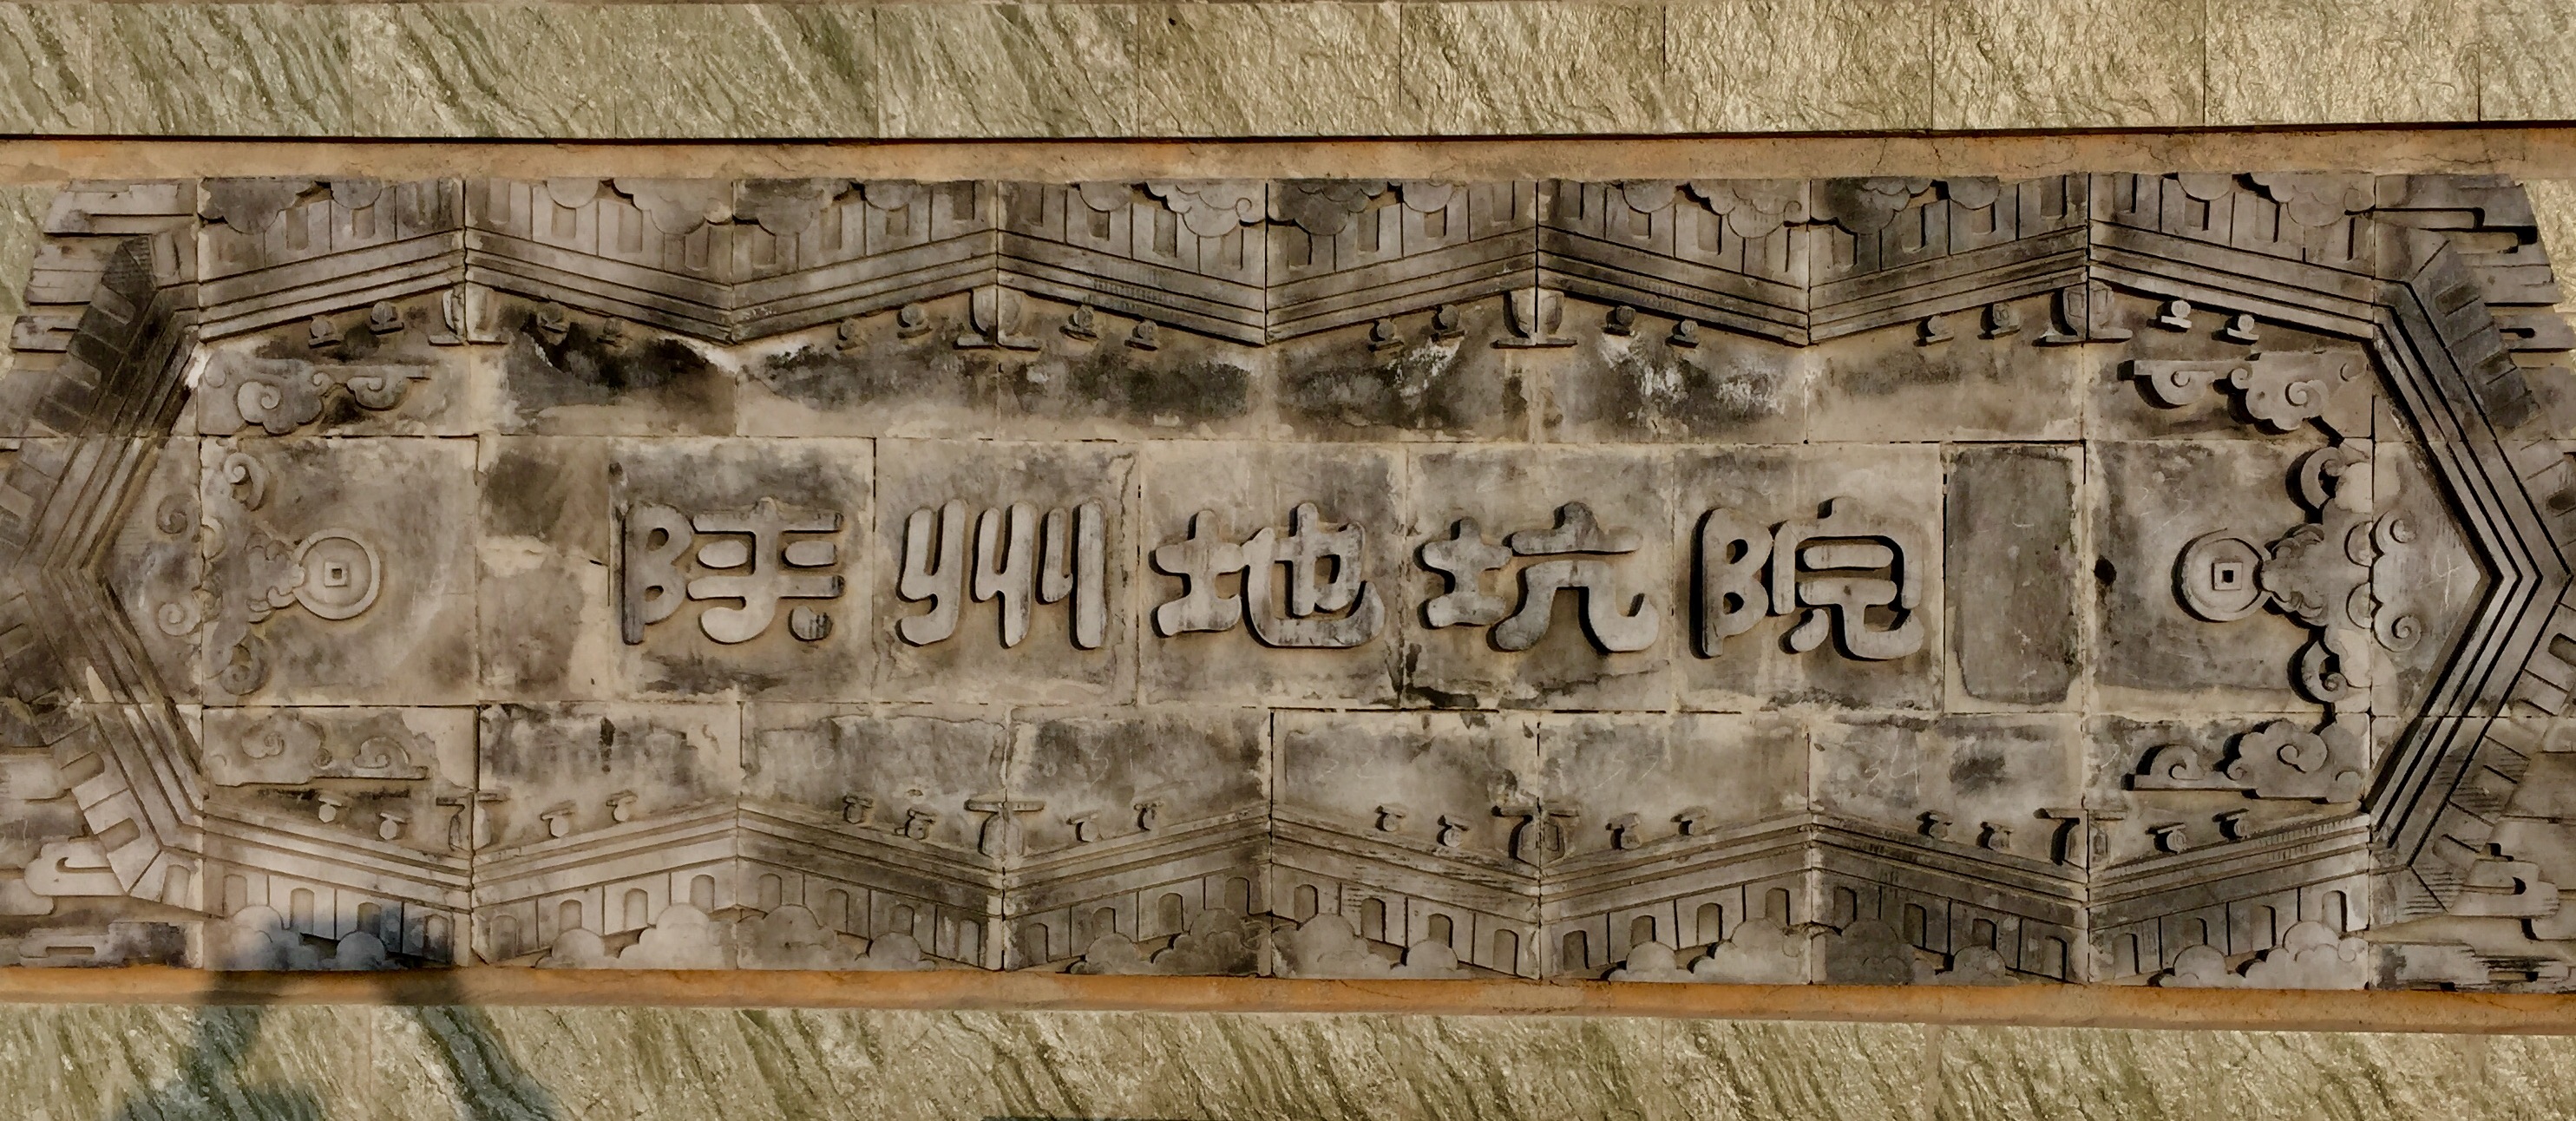 陕州地坑院